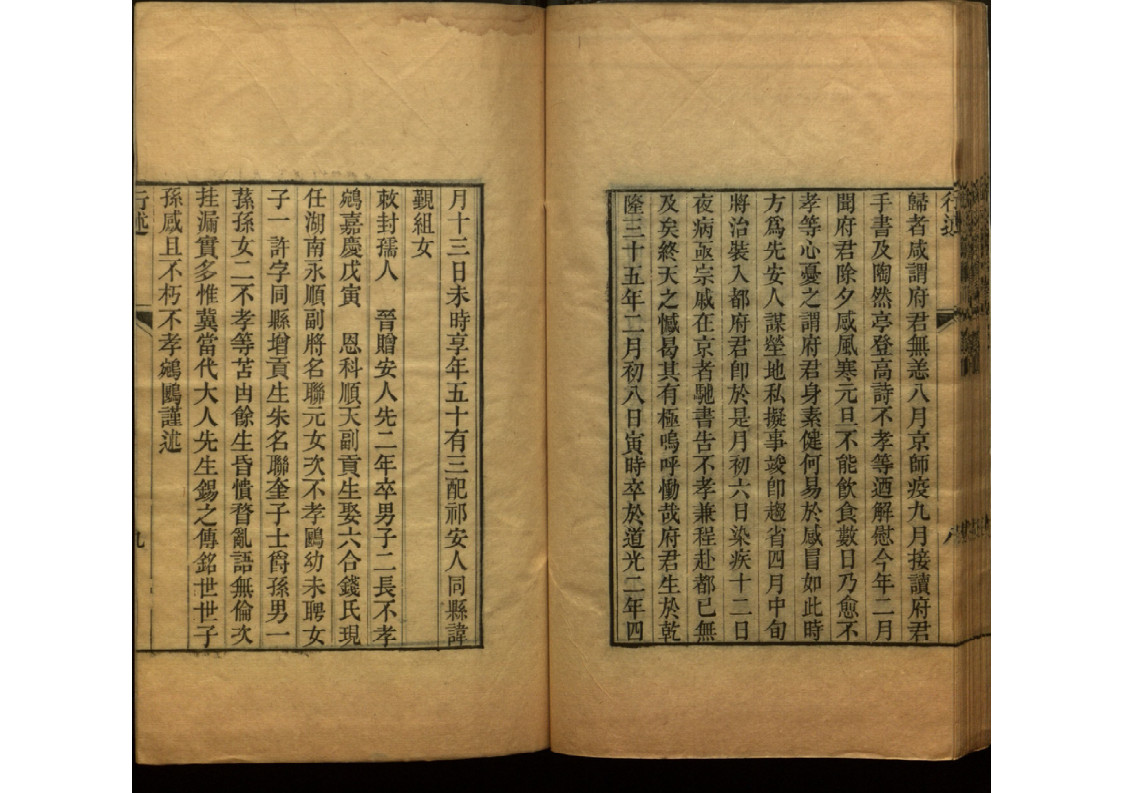 行述
歸者咸謂府君無恙八月京師疫九月接讀府君
手書及陶然亭登高詩不孝等迺解慰今年二月
聞府君除夕感風寒元旦不能飲食數日乃愈不
孝等心憂之謂府君身素健何易於感冒如此時
方爲先安人謀塋地私擬事竣卽趨省四月中旬
將治裝入都府君卽於是月初六日染疾十二日
夜病亟宗戚在京者馳書告不孝兼程赴都已無
及矣終天之憾曷其有極嗚呼慟哉府君生於乾
隆三十五年二月初八日寅時卒於道光二年四
月十三日未時享年五十有三配祁安人同縣諱
覲組女
敕封孺人　晉贈安人先二年卒男子二長不孝
鵷嘉慶戊寅　恩科順天副貢生娶六合錢氏現
任湖南永順副將名聯元女次不孝鷗幼未聘女
子一許字同縣增貢生朱名聯奎子士爵孫男一
蓀孫女二不孝等苫凷餘生昏憒瞀亂語無倫次
挂漏實多惟冀當代大人先生錫之傳銘世世子
孫感且不朽不孝鵷鷗謹述
行述
九